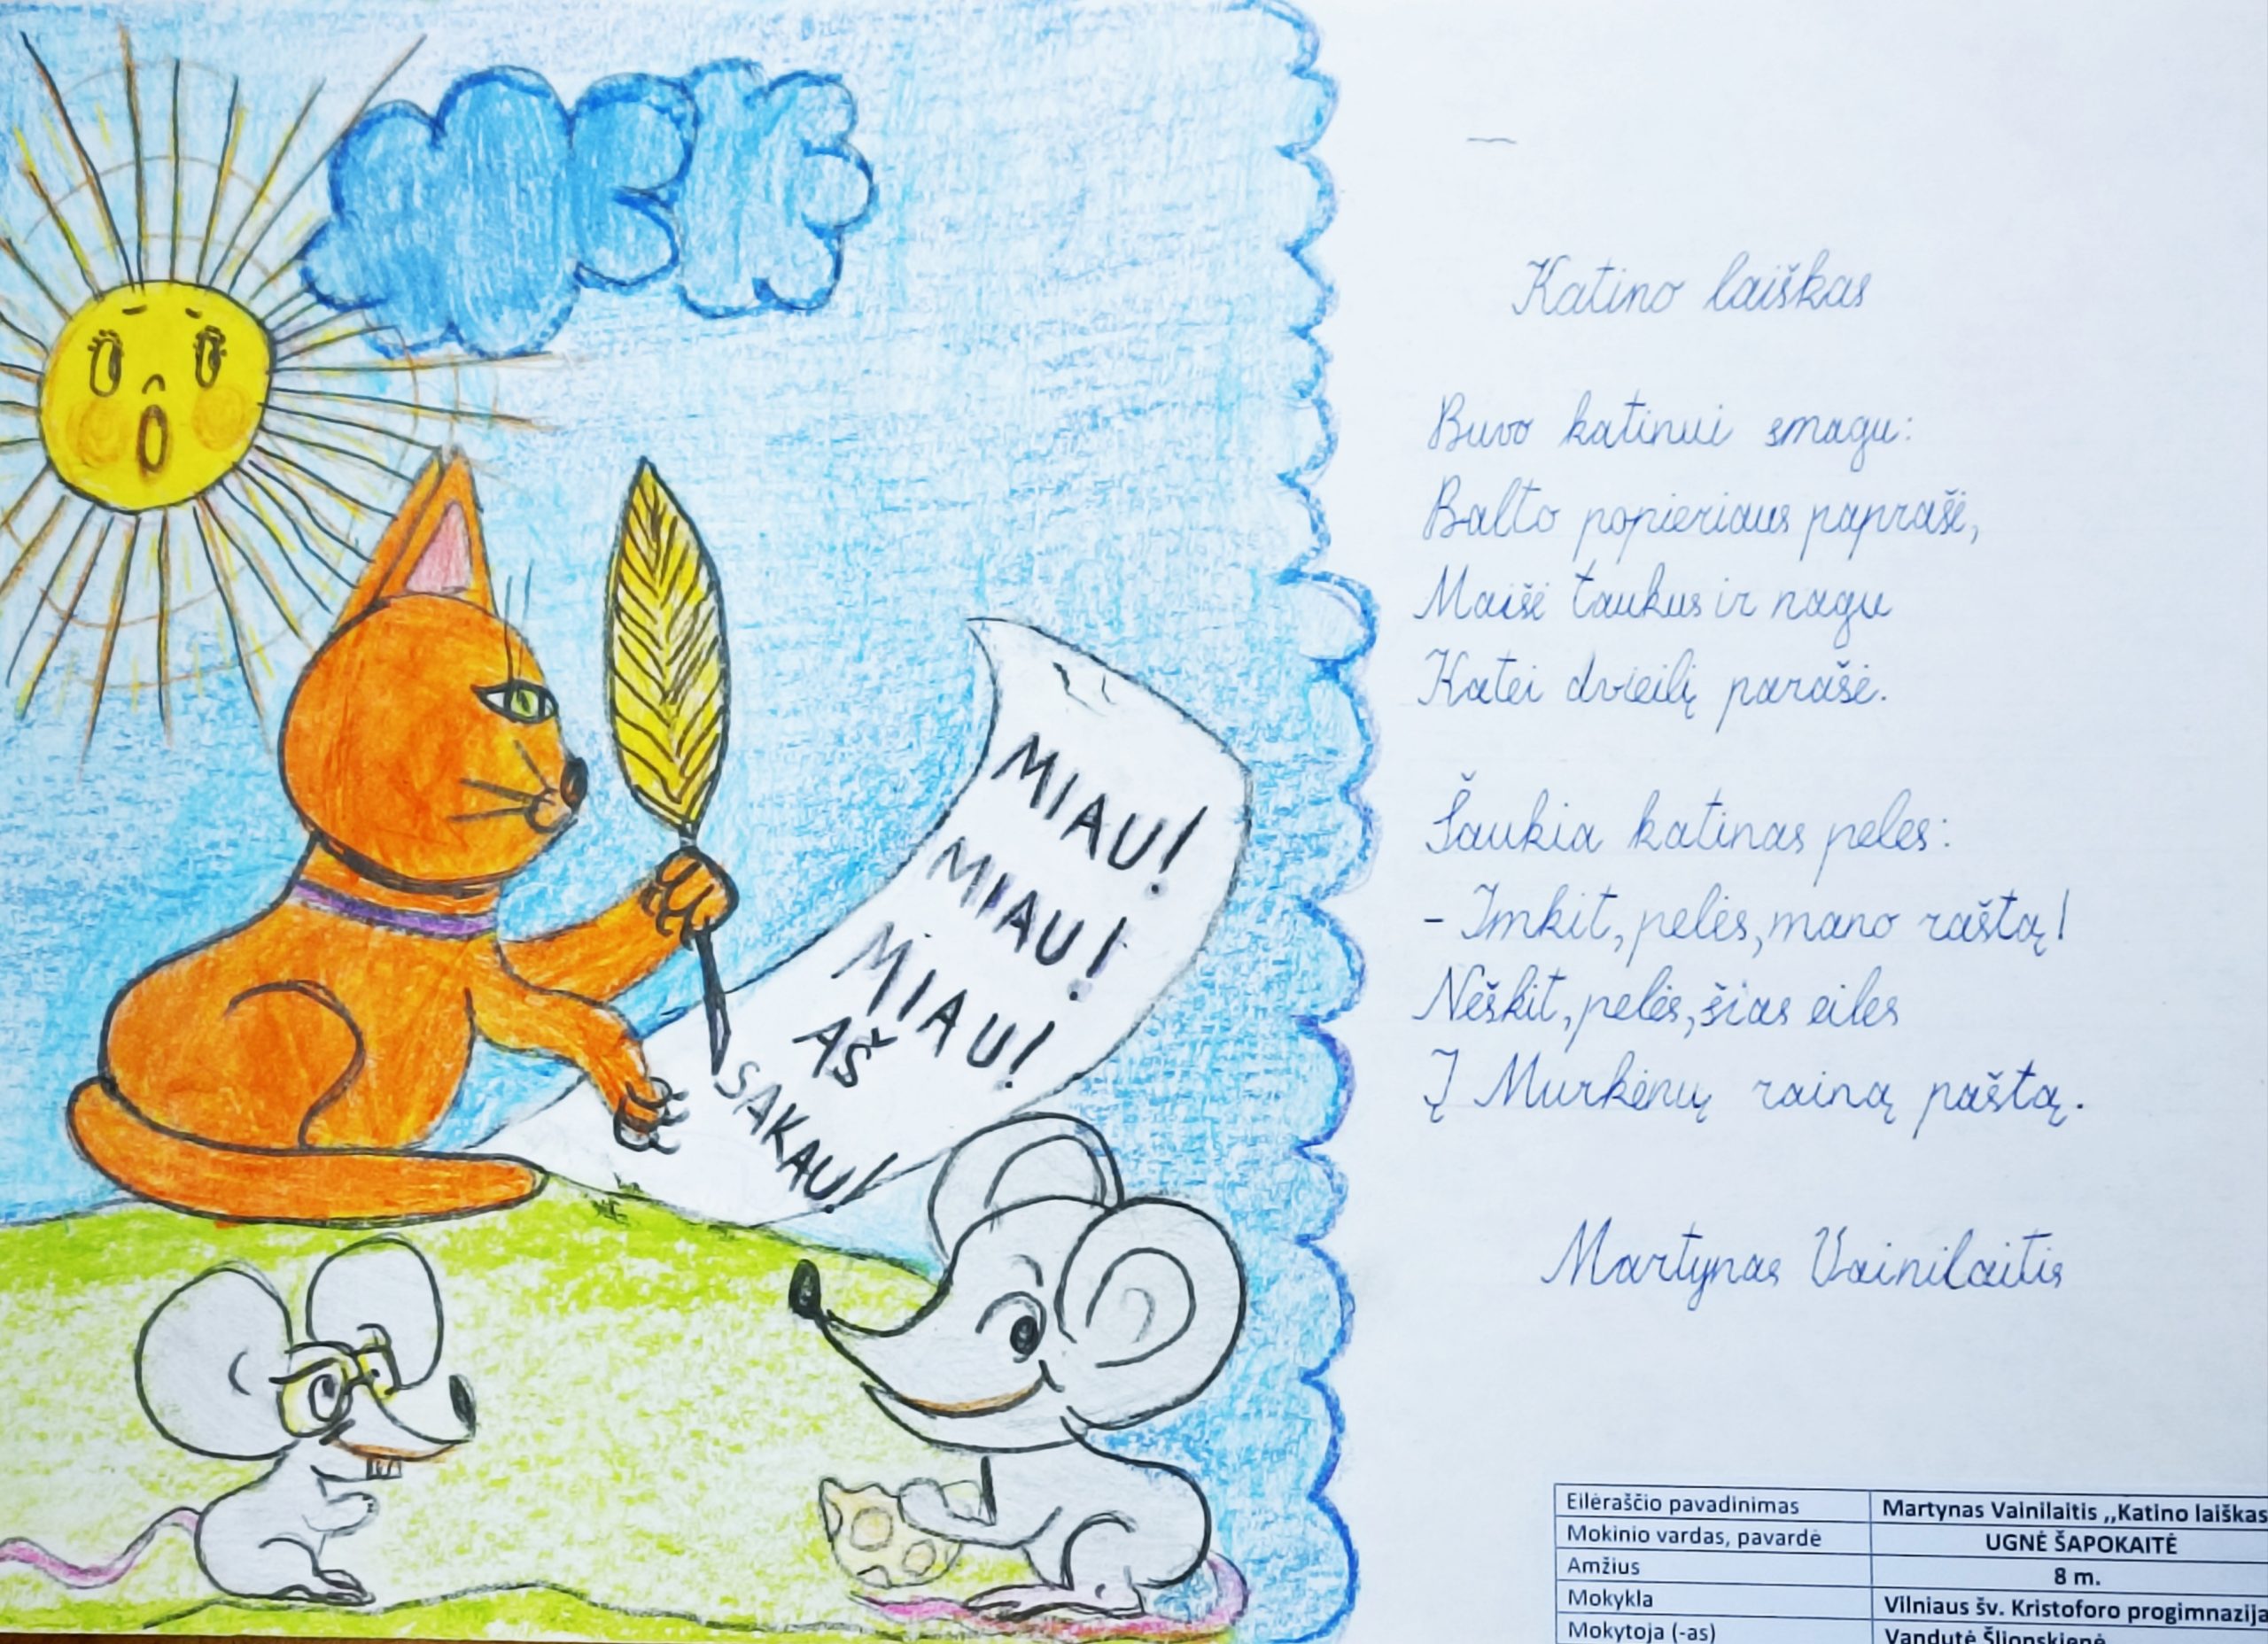 MIAU!
MIAU!
MIAU!
AŠ
SAKAU!
Katino laiškas
Buvo katinui smagu:
Balto popieriaus paprašė,
Maišė taukus ir nagu
Katei dvieilį parašė.
Šaukia katinas peles:
- Imkit, pelės, mano raštą!
Neškit, pelės, šias eiles
Į Murkėnų rainą paštą.
Martynas Vainilaitis
Eilėraščio pavadinimas Martynas Vainilaitis ,,Katino laiškas
Mokinio vardas, pavardė UGNĖ ŠAPOKAITĖ
Amžius 8 m.
Mokykla Vilniaus šv. Kristoforo progimnazija
Mokytoja (-as) Vandutė Šlionskienė